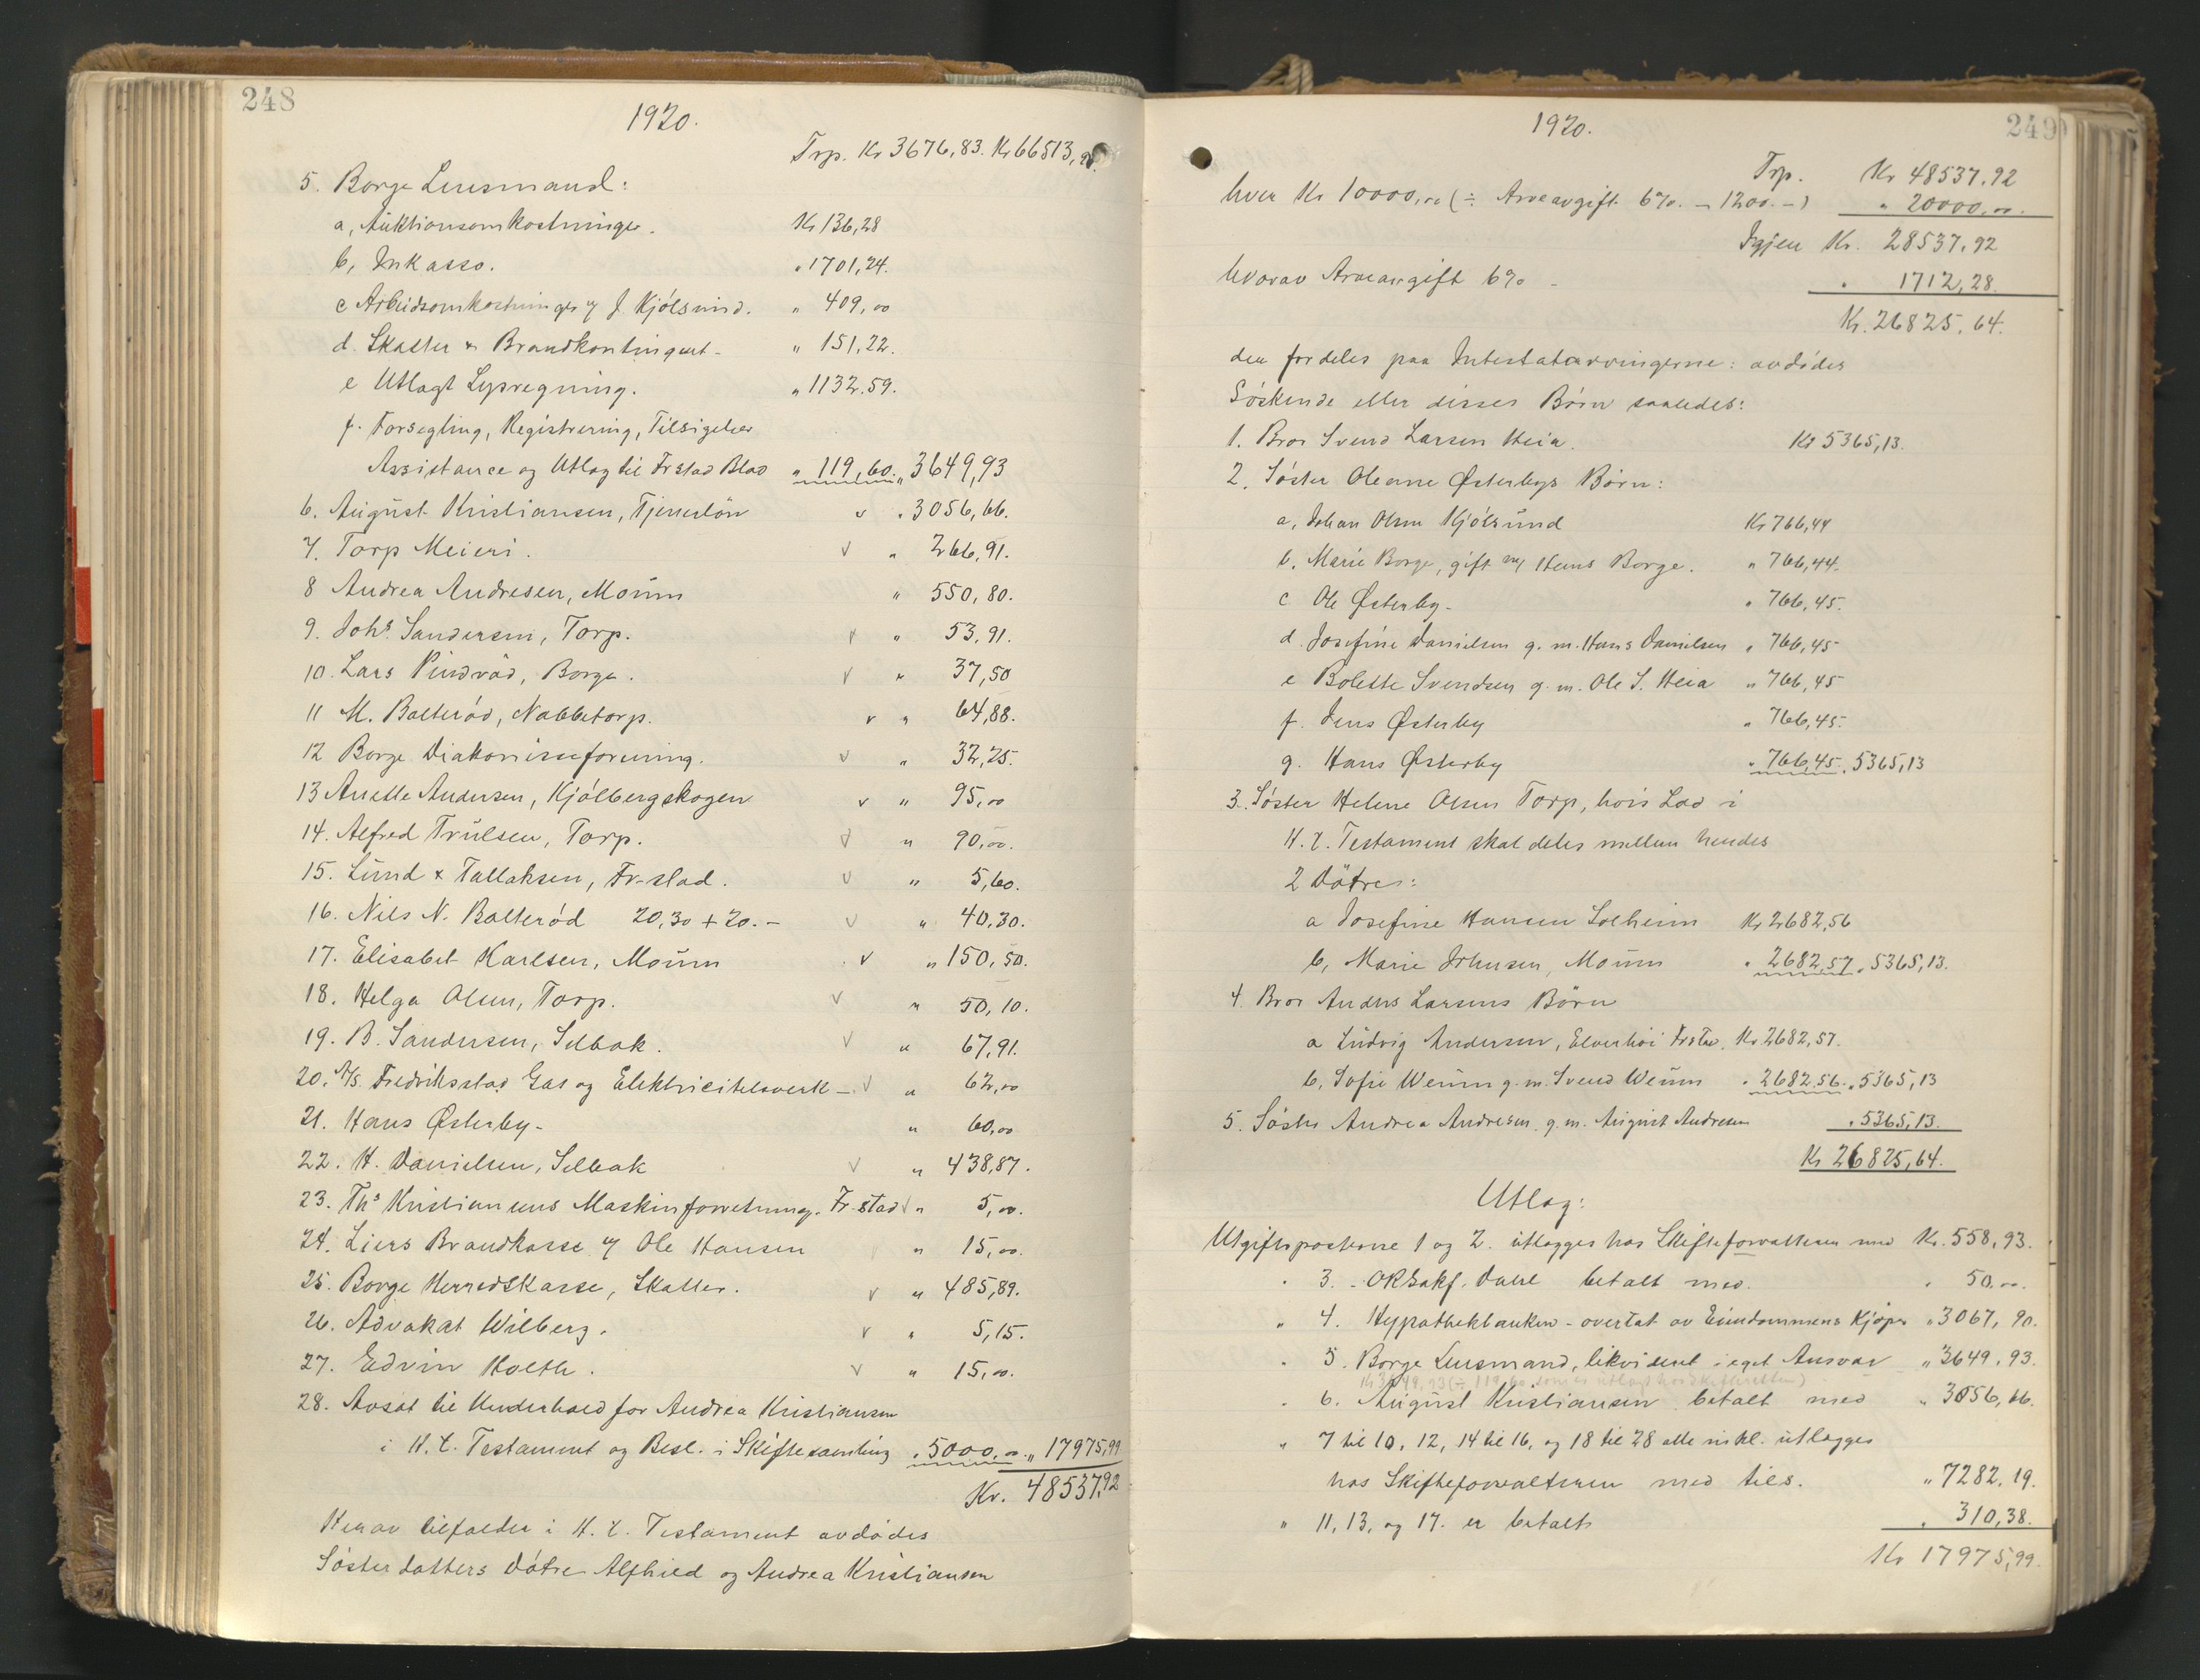 248
1920.
Trp. Kr 3676,83. Kr 66513,91.
5. Borge Lensmand:
a, Auktionsomkostninger. Kr 136,28
b, Inkasso. " 1701,24.
c Arbeidsomkostninger v/ J. Kjölsund. " 409,00
d. Skatter & Brandkontingent - " 151,22.
e Utlagt Lysregning. " 1132.59.
f. Forsegling, Registrering, Tilsigelser
Assistance og Utlag til Frstad Blad " 119,60. " 3649,93
6. August Kristiansen, Tjenerlön v " 3056,66.
7. Torp Meieri. v " 266,91.
8 Andrea Andresen, Moum " 550,80.
9. Johs. Sandersen, Torp. v " 53,91.
10. Lars Pindröd, Borge. v " 37,50
11 M. Balteröd, Nabbetorp. v " 64,88.
12 Borge Diakonisseforening. v " 32,25.
13 Anette Andersen, Kjölbergskogen v " 95,00
14. Alfred Trulsen, Torp. v " 90,00.
15. Lund & Tallaksen, Fr-stad. v " 5,60.
16. Nils N. Balteröd 20,30 + 20.- v " 40,30.
17. Elisabet Karlsen, Moum v " 150,50.
18. Helga Olsen, Torp. v " 50,10.
19. B. Sandersen, Selbak. v " 67,91.
20. A/S. Fredriksstad Gas og Elektricitetsverk -. v " 62,00
21. Hans Østerby - " 60,00
22. H. Danielsen, Selbak v " 438,87.
23. Ths Kristiansens Maskinforretning. Fr.stad v " 5,00.
24. Liers Brandkasse v/ Ole Hansen " 15,00.
25. Borge Herredskasse, Skatter. v " 485,89.
26. Advokat Wilberg. v " 5,15.
27. Edvin Holth. v " 15,00.
28. Avsat til Underhold for Andrea Kristiansen
i H. t. Testament og Besl. i Skiftesamling " 5000,00. " 17975,99
Kr. 48537,92
Herav tilfalder i H. t. Testament avdödes
Söster datters Dötre Alfhild og Andrea Kristiansen
249
1920.
Trp. Kr 48537,92
hver Kr 10000,00 (÷ Arveavgift 6%. - 1200.-) " 20000,00.
Igjen Kr. 28537,92
hvorav Arveavgift 6% - " 1712,28.
Kr. 26825,64.
der fordeles paa Intestatarvingerne: avdödes
Söskende eller disses Börn saaledes:
1. Bror Svend Larsen Heia. Kr 5365,13.
2. Söster Oleane Østerbys Börn:
a, Johan Olsen Kjölsund Kr 766,44
b. Marie Borge, gift m/ Hans Borge. " 766,44.
c Ole Østerby - " 766,45.
d. Josefine Danielsen g. m. Hans Danielsen " 766,45
e Bolette Svendsen g. m. Ole S. Heia " 766,45
f. Jens Østerby " 766,45.
g. Hans Østerby " 766,45. " 5365,13
3. Söster Helene Olsen Torp, hvis Lod i
H. t. Testament skal deles mellem hendes
2 Dötre:
a Josefine Hansen Solheim Kr 2682,56
b, Marie Johnsen, Moum " 2682,57 " 5365,13.
4. Bror Anders Larsens Börn
a Ludvig Andersen, Elverhöi Frstad. Kr 2682,57.
b, Sofie Weum g. m. Svend Weum " 2682,56. " 5365,13
5. Söster Andrea Andresen g. m. August Andresen " 5365,13.
Kr 26825,64.
Utlag:
Utgiftsposterne 1 og 2. utlægges hos Skifteforvalteren med Kr. 558,93.
" 3. - ORSakf. Dahl betalt med. " 50,00.
" 4. Hypothekbanken - overtat av Eiendommens Kjöper " 3067,90.
" 5. Borge Lensmand, likvideret i eget Ansvar " 3649,93.
Kr 3649,93 (÷ 119,60 som er utlagt hos Skifteretten)
" 6. August Kristiansen betalt med " 3056,66.
" 7 til 10, 12, 14 til 16, og 18 til 28 alle inkl. utlægges
hos Skifteforvalteren med tils. " 7282,19.
" 11, 13, og 17. er betalt " 310,38.
Kr 17975,99.